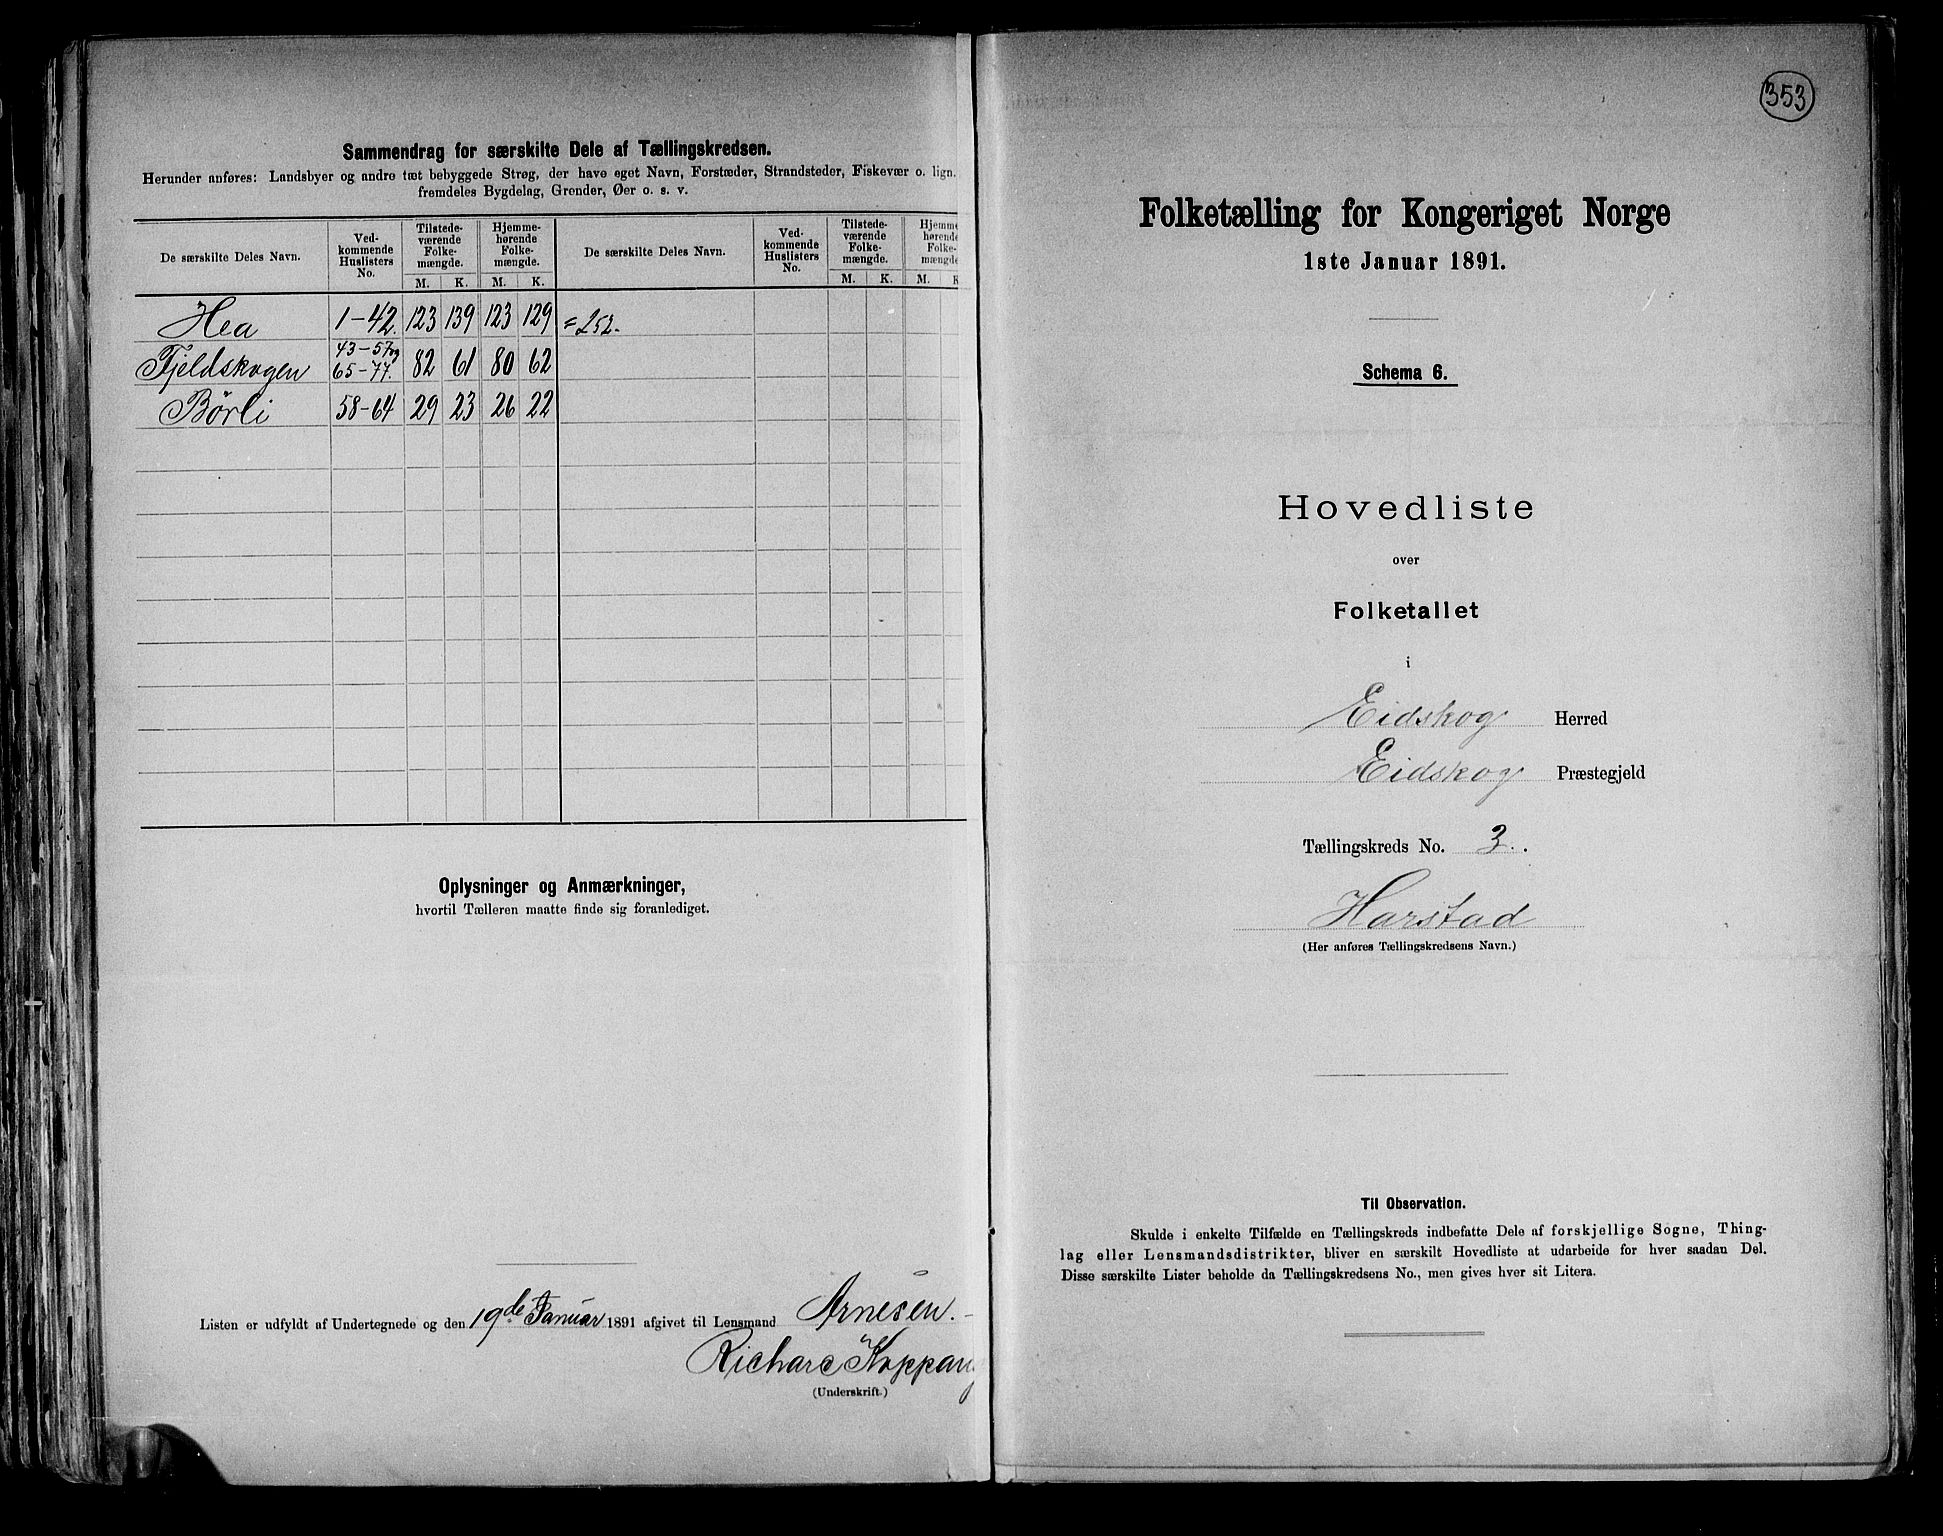 Sammendrag for særskilte Dele af Tællingskredsen.
Herunder anføres: Landsbyer og andre tæt bebyggede Strøg, der have eget Navn, Forstæder, Strandsteder, Fiskevær o. lign.
fremdeles Bygdelag, Grender, Øer o. s. v.
De særskilte Deles Navn. Ved-kommende Huslisters No. Tilstede-værende Folke-mængde. Hjemme-hørende Folke-mængde. De særskilte Deles Navn. Ved-kommende Huslisters No. Tilstede-værende Folke-mængde. Hjemme-hørende Folke-mængde
M. K. M. K. M. K. M. K
Hea 1-42. 123 139 123 129 = 252.
Fjeldskogen 43-57 og 65-77. 82 61 80 62
Børli 58-64 29 23 26 22
Oplysninger og Anmærkninger,
hvortil Tælleren maatte finde sig foranlediget.
Listen er udfyldt af Undertegnede og den 19de Januar 1891 afgivet til Lensmand Arnesen.
Richard Koppang
(Underskrift.)
353
Folketælling for Kongeriget Norge
1ste Januar 1891.
Schema 6.
Hovedliste
over
Folketallet
i
Eidskog Herred
Eidskog Præstegjeld
Tællingskreds No. 3.
Harstad
(Her anføres Tællingskredsens Navn.)
Til Observation.
Skulde i enkelte Tilfælde en Tællingskreds indbefatte Dele af forskjellige Sogne, Thing-
lag eller Lensmandsdistrikter, bliver en særskilt Hovedliste at udarbeide for hver saadan Del.
Disse særskilte Lister beholde da Tællingskredsens No., men gives hver sit Litera.